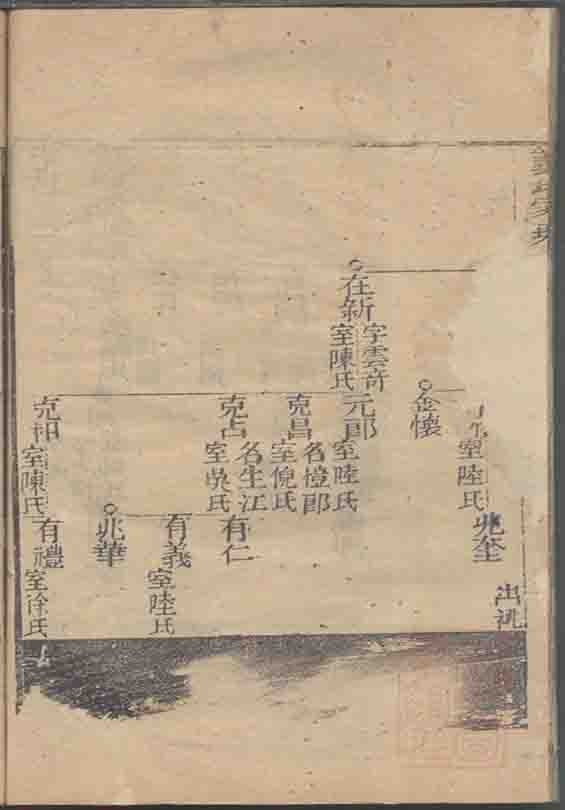 室陸氏
兆奎
出
金懷
在新
字雲奇
室陳氏
元郎
室陸氏
克昌
名橙郎
室倪氏
克占
名生江
室吳氏
有仁
有義
室陸氏
兆華
克和
室陳氏
有禮
室徐氏